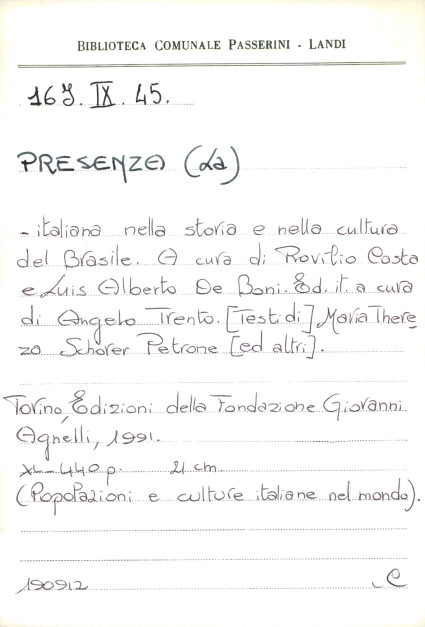 BIBLIOTECA COMUNALE PASSERINI - LANDI
16 J. IX. 45.
PRESENZA (La)
- italiana nella storia e nella cultura
del Brasile. A cura di Rovilio Costa
e Luis Alberto De Boni. Ed. it. a cura
di Angelo Trento. [Testi di] Maria There
za Schorer Petrone [ed altri].
Torino, Edizioni della Fondazione Giovanni
Agnelli, 1991.
XL-440 p. 21 cm.
(Popolazioni e culture italiane nel mondo).
190912 C